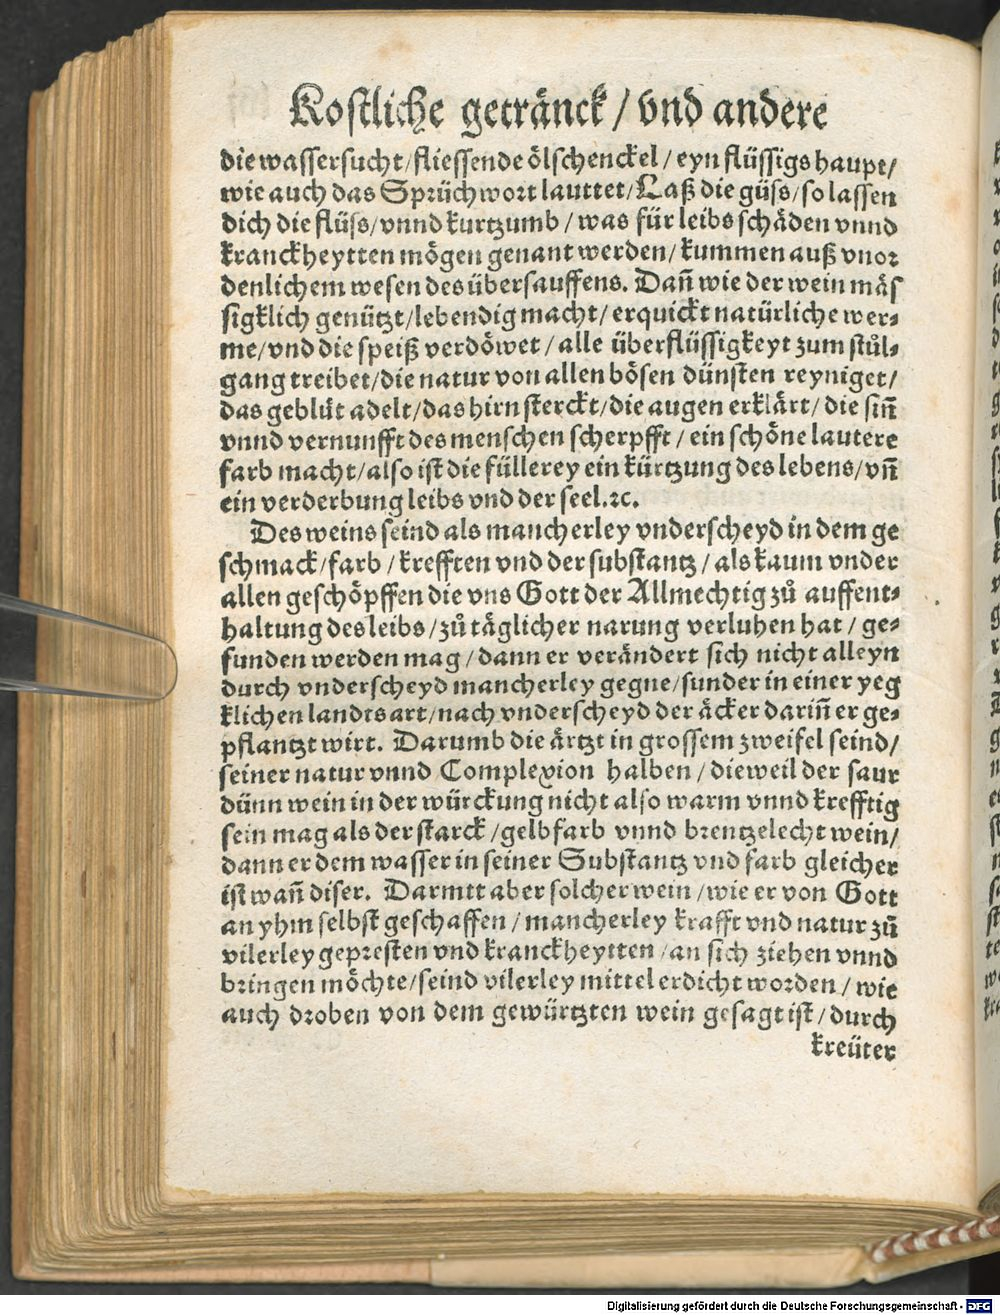 Kostliche getränck / vnd andere
die wassersucht / fliessende ölschenckel / eyn flüssigs haupt /
wie auch das Sprüchwort lauttet / Laß die güß / so lassen
dich die flüß / vnnd kurtzumb / was für leibs schäden vnnd
kranckheytten mögen genant werden / kummen auß vnor
denlichem wesen des übersauffens. Dañ wie der wein mäs
sigklich genützt / lebendig macht / erquickt natürliche wer⸗
me / vnd die speiß verdöwet / alle überflüssigkeyt zum stůl⸗
gang treibet / die natur von allen bösen dünsten reyniget /
das geblüt adelt / das hirn sterckt / die augen erklärt / die siñ
vnnd vernunfft des menschen scherpfft / ein schöne lautere
farb macht / also ist die füllerey ein kürtzung des lebens / vñ
ein verderbung leibs vnd der seel. ꝛc.
Des weins seind als mancherley vnderscheyd in dem ge
schmack / farb / krefften vnd der substantz / als kaum vnder
allen geschöpffen die vns Gott der Allmechtig zů auffent⸗
haltung des leibs / zů täglicher narung verluhen hat / ge⸗
funden werden mag / dann er verändert sich nicht alleyn
durch vnderscheyd mancherley gegne / sunder in einer yeg
klichen landts art / nach vnderscheyd der äcker dariñ er ge⸗
pflantzt wirt. Darumb die ärtzt in grossem zweifel seind /
seiner natur vnnd Complexion halben / dieweil der saur
dünn wein in der würckung nicht also warm vnnd krefftig
sein mag als der starck / gelbfarb vnnd brentzelecht wein /
dann er dem wasser in seiner Substantz vnd farb gleicher
ist wañ diser. Darmtt aber solcher wein / wie er von Gott
an yhm selbst geschaffen / mancherley krafft vnd natur zů
vilerley gepresten vnd kranckheytten / an sich ziehen vnnd
bringen möchte / seind vilerley mittel erdicht worden / wie
auch droben von dem gewürtzten wein gesagt ist / durch
kreüter
Digitalisierung gefördert durch die Deutsche Forschungsgemeinschaft - DFG